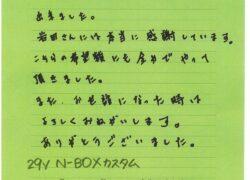 出来ました。
岩田さんには本当に感謝しています。
こちらの希望額にも合わせてやって
頂きました。
また、お世話になった時は
よろしくおねがいします。
ありがとうございました。
29y N-BOXカスタム